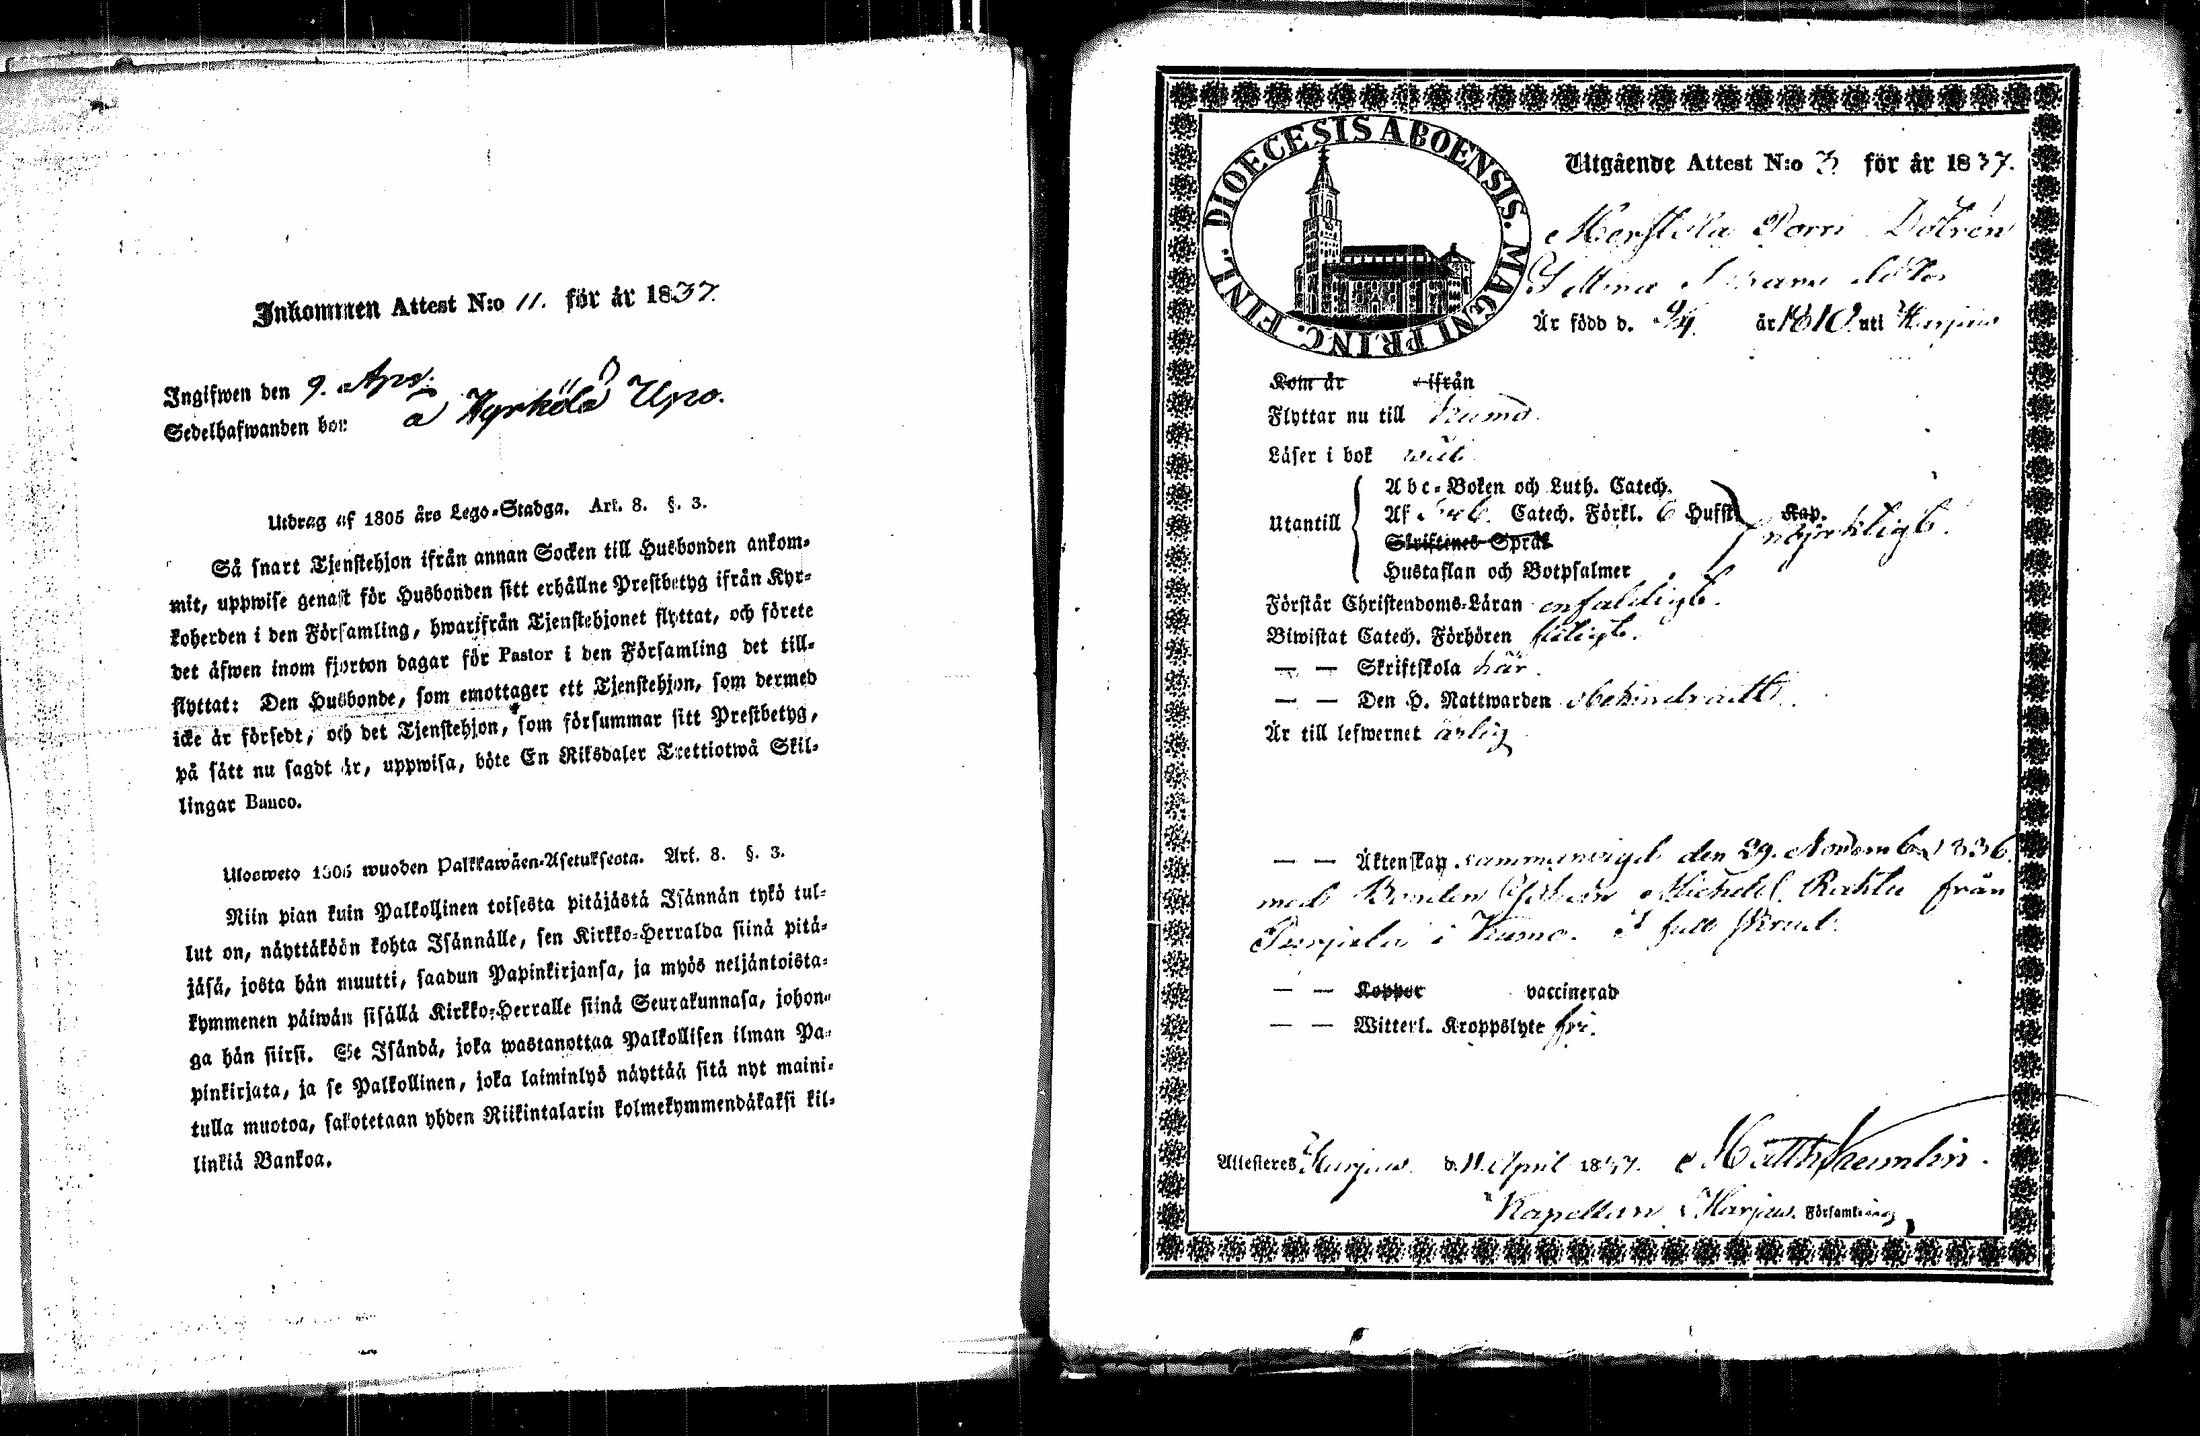 Inkommen Attest N:o 11. för år 1837.
Ingifwen den 9. Apr.
Sedelhafwanden bor å Kyrkölä Upo.
Utdrag af 1805 års Lego-Stadga. Art. 8. §. 3.
Så snart Tjenstehjon ifrån annan Socken till Husbonden ankom-
mit, uppwise genast för Husbonden sitt erhållne Prestbetyg ifrån Kyr-
koherden i den Församling, hwarifrån Tjenstehjonet flyttat, och förete
det äfwen inom fjorton dagar för Pastor i den Församling det till-
flyttat: Den Husbonde, som emottager ett Tjenstehjon, som dermed
icke är försedt, och det Tjenstehjon, som försummar sitt Prestbetyg,
på sätt nu sagdt är, uppwisa, böte En Riksdaler Trettiotwå Skil-
lingar Banco.
Ulosweto 1805 wuoden Palkkawäen-Asetuksesta. Art. 8. §. 3.
Niin pian kuin Palkollinen toisesta pitäjästä Isännän tykö tul-
lut on, näyttäköön kohta Isännälle, sen Kirkko-Herralda siinä pitä-
jäsä, josta hän muutti, saadun Papinkirjansa, ja myös neljäntoista-
kymmenen päiwän sisällä Kirkko-Herralle siinä Seurakunnasa, johon-
ga hän siirsi. Se Isändä, joka wastanottaa Palkollisen ilman Pa-
pinkirjata, ja se Palkollinen, joka laiminlyö näyttää sitä nyt maini-
tulla muotoa, sakotetaan yhden Riikintalarin kolmekymmendäkaksi kil-
linkiä Bankoa.
DIOECESIS ABOENSIS. MAGNI PRINC. FINL.
Utgående Attest N:o 3 för år 1837.
Porri Dotren
Är född d. 24 år 1810 uti Harjus
Kom år ifrån
Flyttar nu till Kumo.
Läser i bok wäl
Utantill
Abc-Boken och Luth. Catech.
Af Catech. Förkl. 6 Hufst. Kap.
Skriftenes Språk
nöjaktigt.
Hustaflan och Botpsalmer
Förstår Christendoms-Läran enfaldigt.
Biwistat Catech. Förhören flitigt.
— — Skriftskola här.
— — Den H. Nattwarden obehindradt.
Är till lefwernet ärlig
— — Äktenskap sammanvigd den 29. November 1836
med Bonden Michel från
i Kumo.
— — Koppor vaccinerad
— — Witterl. Kroppslyte fri.
Attesteres Harjus d. 11 April 1837. Matth
Kapellan i Harjus. Församling